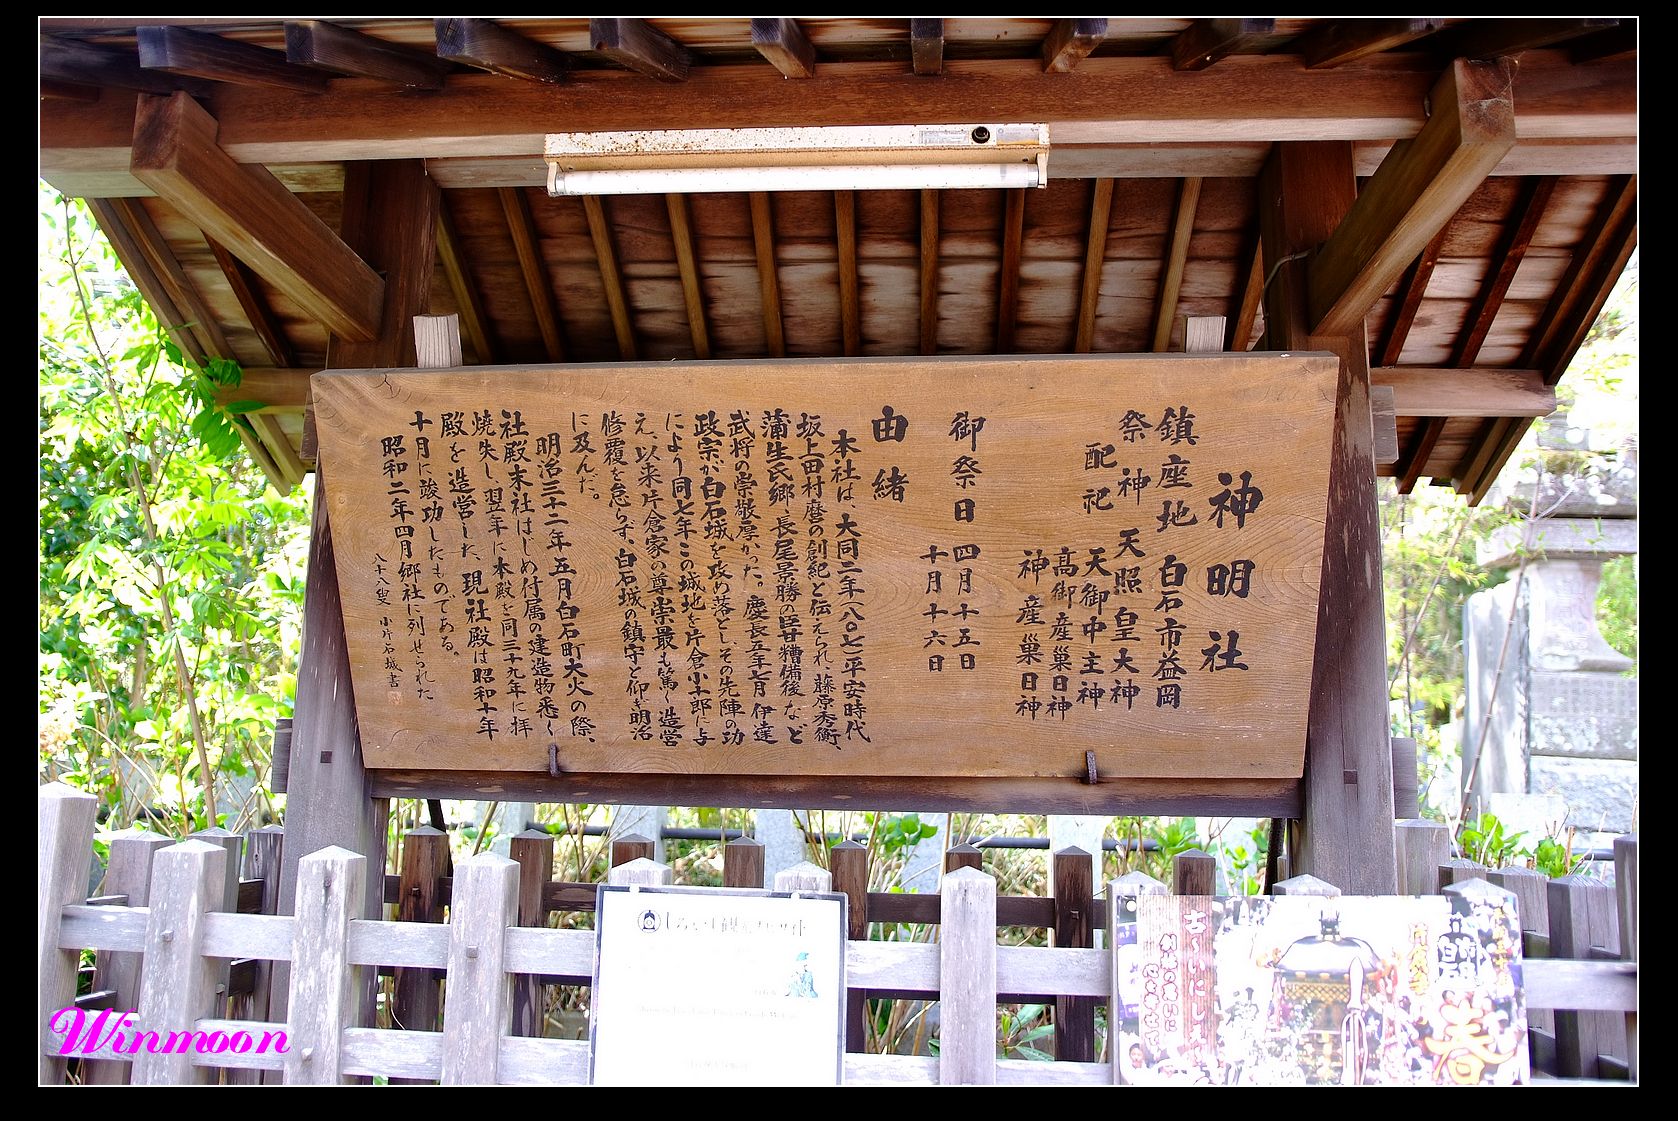 神明社
鎮座地 白石市益岡
祭神 天照皇大神
配祀 天御中主神
高御産巣日神
神産巣日神
御祭日 四月十五日
十月十六日
由緒
本社は、大同二年(八〇七)平安時代
坂上田村麿の創紀と伝えられ、藤原秀衡、
蒲生氏郷、長尾景勝の臣甘糟備後など
武将の崇敬厚かった。慶長五年七月伊達
政宗が白石城を攻め落とし、その先陣の功
により同七年この城地を片倉小十郎に与
え、以来片倉家の尊崇最も篤く造営
修覆を怠らず、白石城の鎮守と仰ぎ明治
に及んだ。
明治三十二年五月白石町大火の際、
社殿末社はじめ付属の建造物悉く
焼失し、翌年に本殿を同三十九年に拝
殿を造営した、現社殿は昭和十年
十月に竣功したものである。
昭和二年四月郷社に列せられた
八十八叟 小片石城書
春
Winmoon